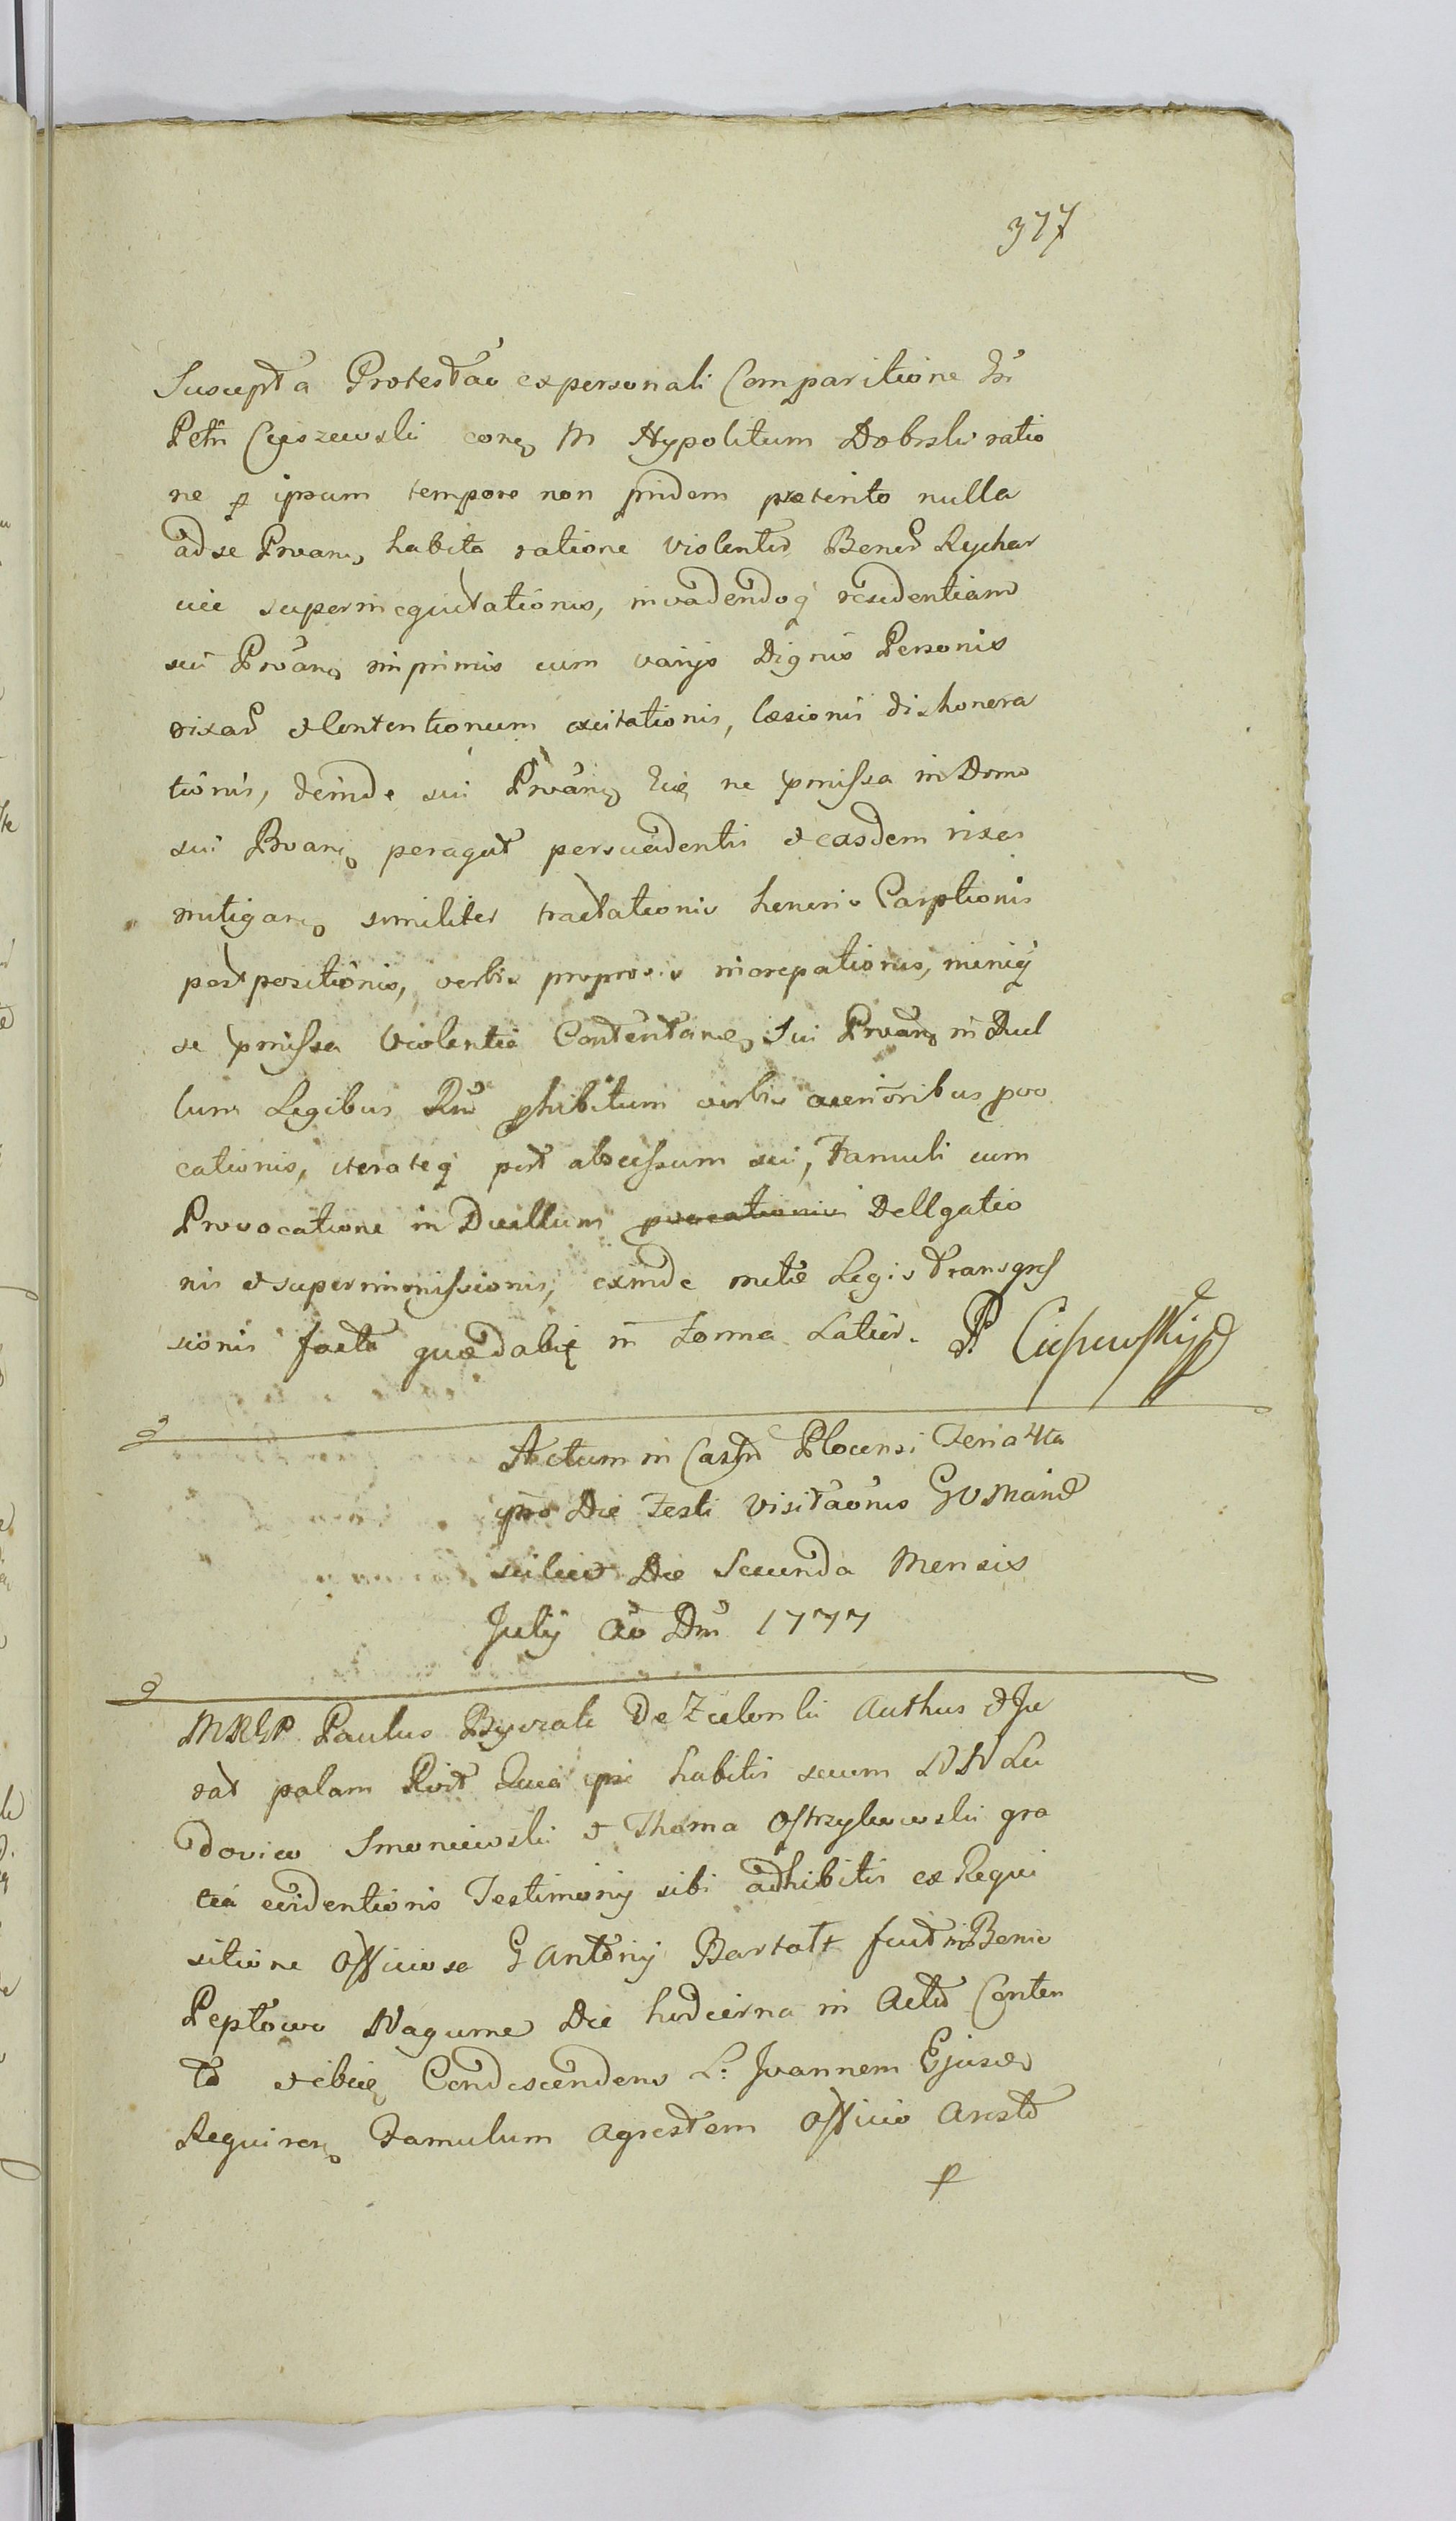 377
Suscepta Protestao ex personali Comparitione Gsi
Petri Cieszewski cong M Hypolitum Dobrski ratio
ne p ipsum tempore non pridem præterito nulla
ad se Prvang habita ratione violenter Bener Rychar
cice superinequitationis, invadendoq residentiam
sui Prvang inprimis cum varys Dignis Personis
rixar et Contentionum excitationis, læsionis dishonera
tionis, deinde sui Prvang ne pmissa in Domo
sui Prvang peragat persvadentis et easdem rixas
mitigang similiter tractationis honoris Carptionis
postpositionis, verbis improperationis, miniq
se pmissa Violentia Contentang Sui Prvang in Duel
lum Legibus Rni phibitum verbis acerioribus pvo
cationis, iterateq post abscessum sui, Famuli cum
Provocatione in Duellum provocationis Dellgatio
nis et superimmissionis, exinde Legis transgres
sionis facta quædabit in Forma Latiori. P. Cieszewski
Actum in Castro Plocensi Feria 4ta
ipso Die Festi Visitaonis BV Mariæ
scilicet Die Secunda Mensis
July Ao Dni 1777
MRGP Paulus Bywalt De Zielonki Authus et Ju
rat palam Rvit Quia ipse habitis secum NN Lu
dovico Smoniewski et Thoma Ostrzykowski gra
tia evidentioris Testimony sibi adhibitis ex Requi
sitione Officiosa G Antony Bartolt fuit in Bonis
Peptowo Die hodierna in Actu Conten
to et ibiq Condescendens L: Joannem Ejusd
Requireng Famulum Agrestem Officio Aresto
p